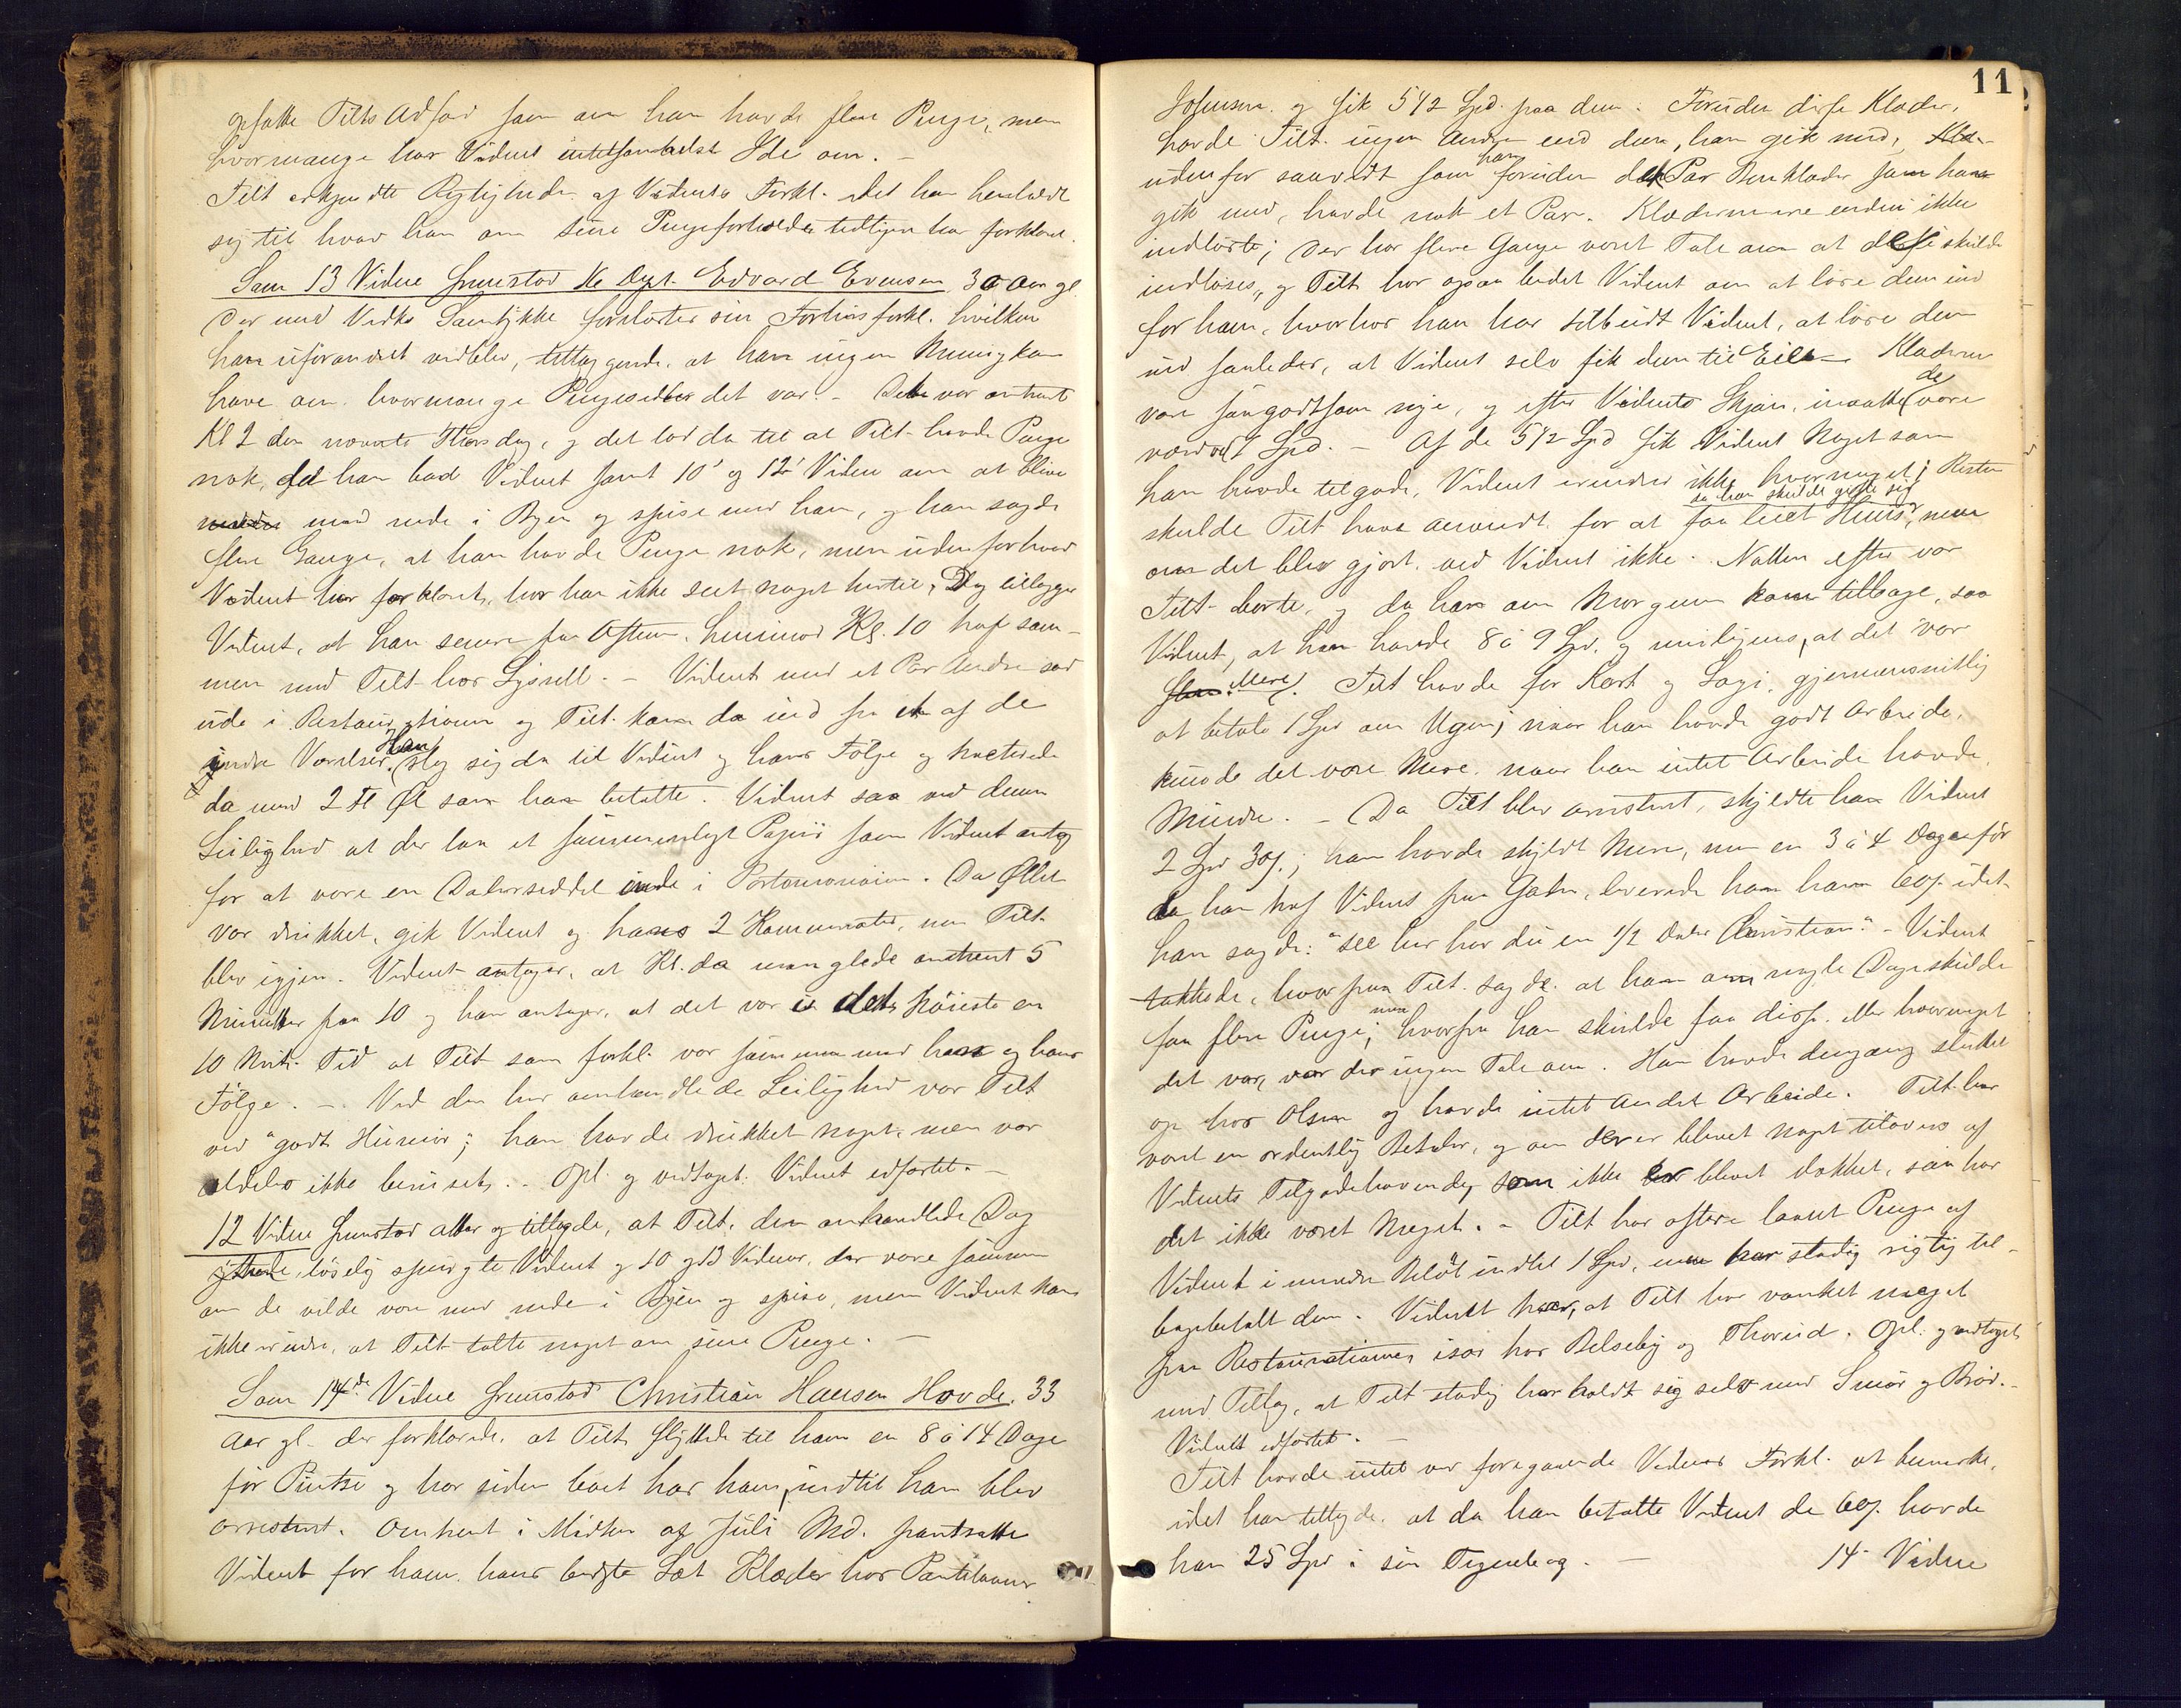 opfatte Tilts Adfærd som om han havde flere Penge, men
hvormange har Vidnet intetsomhelst Ide om. –
Tilt erkjendte Rigtigheden af Vidnets Forkl. idet han henholdt
sig til hvad han om sine Pengeforholde tidligere har forklaret.
Som 13 Vidne fremstod Edvard Evensen, 30 Aar gl.
Der med Vedks Samtykke forelæstes sin Forhørsforkl. hvilken
han uforandret vedblev, tillæggende, at han ingen Mening kan
have om hvormange Pengesedler det var. – Det var omtrent
Kl 2 den nævnte Thorsdag, og det lod da til at Tilt. havde Penge
nok, idet han bad Vidnet samt 10' og 12' Vidne om at blive
med nede i Byen og spise med ham, og han sagde
flere Gange, at han havde Penge nok, men udenfor hvad
Vidnet har forklaret, har han ikke seet noget hertil. Dog tillægger
Vidnet, at han senere paa Aftenen henimod Kl. 10 traf sam-
men med Tilt hos Lysell. – Vidnet med et Par Andre sad
ude i Restaurationen og Tilt. kom da ind fra et af de
indre Værelser. Han slog sig da til Vidnet og hans Følge og trakterede
da med 2 Fl Øl som han betalte. Vidnet saa ved denne
Leilighed at der laa et sammenlagt Papir som Vidnet antog
for at være en Dalerseddel inde i Portemonnaien. Da Øllet
var drukket, gik Vidnet og hans 2 Kammerater, men Tilt.
blev igjen. Vidnet antager, at Kl. da manglede omtrent 5
Minutter paa 10 og han antager, at det var i det høieste en
10 Min. Tid at Tilt som forkl. var sammen med ham og hans
Følge. –. Ved den her omhandlede Leilighed var Tilt
ved "godt Humør"; han havde drukket noget, men var
aldeles ikke beruset. – Opl. og vedtaget. Vidnet edfæstet. –
12 Vidne fremstod atter og tillagde, at Tilt. den omhandlede Dag
løselig spurgte Vidnet og 10 og 13 Vidner, der vare sammen
om de vilde være med nede i Byen og spise, men Vidnet kan
ikke erindre, at Tilt talte noget om sine Penge. –
Som 14de Vidne fremstod Christian Hansen Hovde, 33
Aar gl. der forklarede, at Tilt. flyttede til ham en 8 à 14 Dage
før Pintse og har siden boet hos ham, indtil han blev
arresteret. Omtrent i Midten af Juli Md. pantsatte
Vidnet for ham hans bedste Sæt Klæder hos Pantelaaner
11
Johnsen og fik 5 1/2 Spd. paa dem. Foruden disse Klæder,
havde Tilt. ingen Andre end dem, han gik med,
udenfor saavidt som han foruden det Par Benklæder som han
gik med, havde nok et Par. Klæderne ere endnu ikke
indløste; der har flere Gange været Tale om at disse skulde
indløses, og Tilt har ogsaa bedet Vidnet om at løse dem ind
for ham, hvorhos han har tilbudt Vidnet, at løse dem
ind saaledes, at Vidnet selv fik dem til Eie. – Klæderne
vare saagodtsom nye, og efter Vidnets Skjøn, maatte de være
værd Spd. – Af de 5 1/2 Spd fik Vidnet Noget som
han havde tilgode, Vidnet erindrer ikke hvormeget; Resten
skulde Tilt have anvendt for at faa leiet Huus, da han skulde gifte sig, men
om det blev gjort, ved Vidnet ikke. Natten efter var
Tilt. borte, og da han om Morgenen kom tilbage, saa
Vidnet, at han havde 8 à 9 Spd. og muligens, at det var
Mere. Tilt havde for Kost og Logi, gjennemsnitlig
at betale 1 Spd om Ugen; naar han havde godt Arbeide,
kunde det være Mere, naar han intet Arbeide havde,
Mindre. – Da Tilt blev arresteret, skyldte han Vidnet
2 Spd 30 s.; han havde skyldt Mere, men en 3 à 4 Dage før
da han traf Vidnet paa Gaden, leverede han ham 60 s. idet
han sagde: "see her har du en 1/2 Daler Christian". – Vidnet
takkede, hvorpaa Tilt. sagde at han om nogle Dage skulde
faa flere Penge; men hvorfra han skulde faa disse, eller hvormeget
det var, var der ingen Tale om. Han havde dengang sluttet
op hos Olsen og havde intet andet Arbeide. Tilt. har
været en ordentlig Betaler, og om der er blevet noget tilovers af
Vidnets Tilgodehavende, som ikke er blevet dækket, saa har
det ikke været Meget. – Tilt har oftere laant Penge af
Vidnet i mindre Beløb indtil 1 Spd, men har stadig rigtig til-
bagebetalt dem. Vidnet har, at Tilt har vanket meget
paa Restaurationer, især hos Belseby og Thorud. Opl. og vedtaget
med Tillæg, at Tilt stadig har holdt sig selv med Smør og Brød.
Vidnet edfæstet. –
Tilt havde intet ved foregaaende Vidnes Forkl. at bemærke,
idet han tillagde, at da han betalte Vidnet de 60 s. havde
han 25 Spd i sin Tegnebog. –
14. Vidne